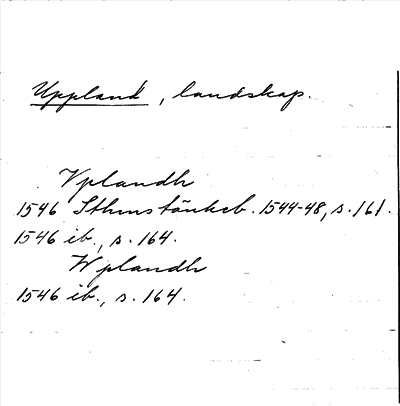 Uppland, landskap.
Vplandh
1546 Sthms tänkeb. 1544-48, s. 161.
1546 ib., s. 164.
Wplandh
1546 ib., s. 164.